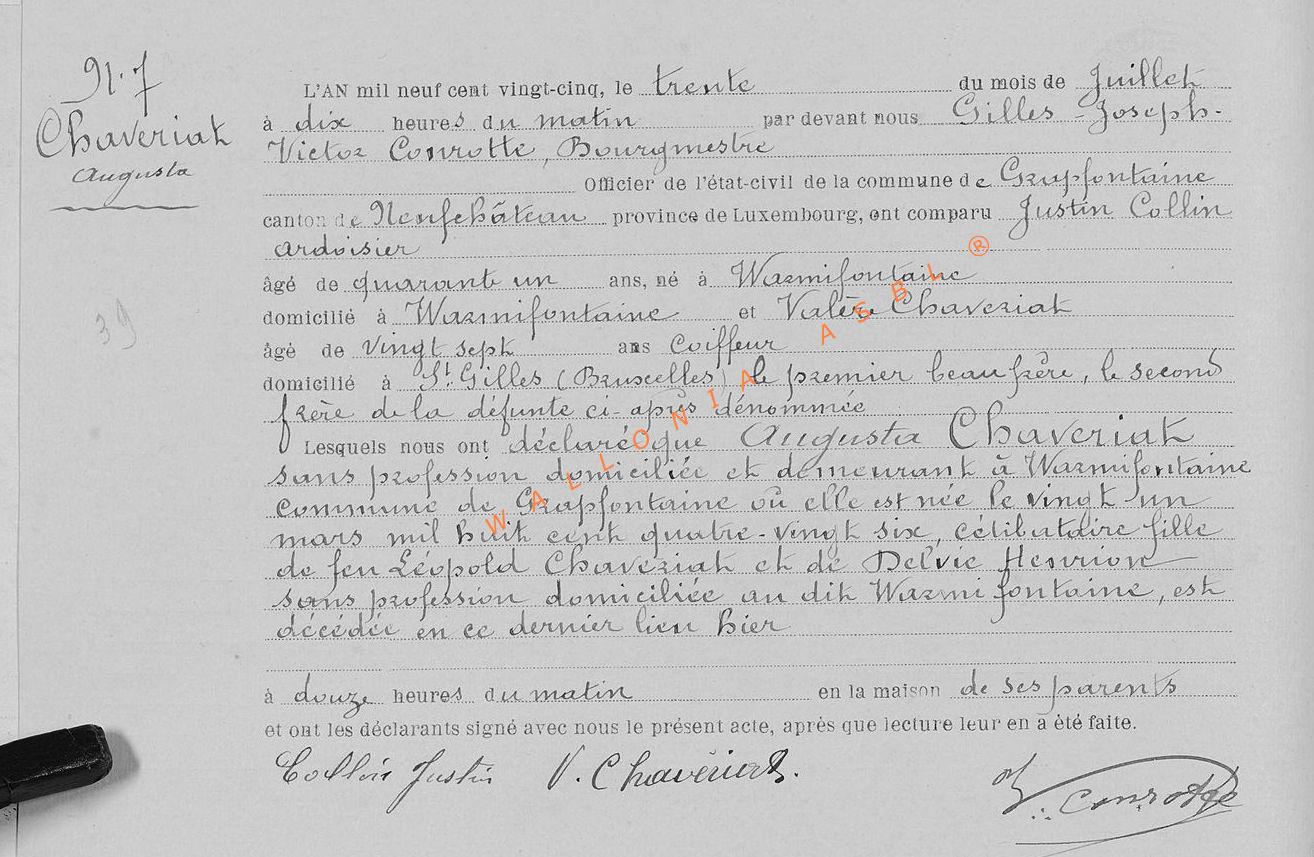 N. 7
Chaveriat
Augusta
39
L'AN mil neuf cent vingt-cinq, le trente du mois de Juillet
à dix heures du matin par devant nous Gilles-Joseph-
Victor Conrotte, Bourgmestre
Officier de l'état-civil de la commune de Grapfontaine
canton de Neufchâteau province de Luxembourg, ont comparu Justin Collin
ardoisier
âgé de quarante un ans, né à Warmifontaine
domicilié à Warmifontaine et Valère Chaveriat
âgé de vingt sept ans coiffeur
domicilié à St. Gilles (Bruxelles) le premier beau frère, le second
frère de la défunte ci-après dénommée
Lesquels nous ont déclaré que Augusta Chaveriat
sans profession domiciliée et demeurant à Warmifontaine
commune de Grapfontaine où elle est née le vingt un
mars mil huit cent quatre-vingt six, célibataire fille
de feu Léopold Chaveriat et de Delvie Henrion
sans profession domiciliée au dit Warmifontaine, est
décédée en ce dernier lieu hier
à douze heures du matin en la maison de ses parents
et ont les déclarants signé avec nous le présent acte, après que lecture leur en a été faite.
Collin Justin V. Chavériat. V. Conrotte
WALLONIA ASBL ®